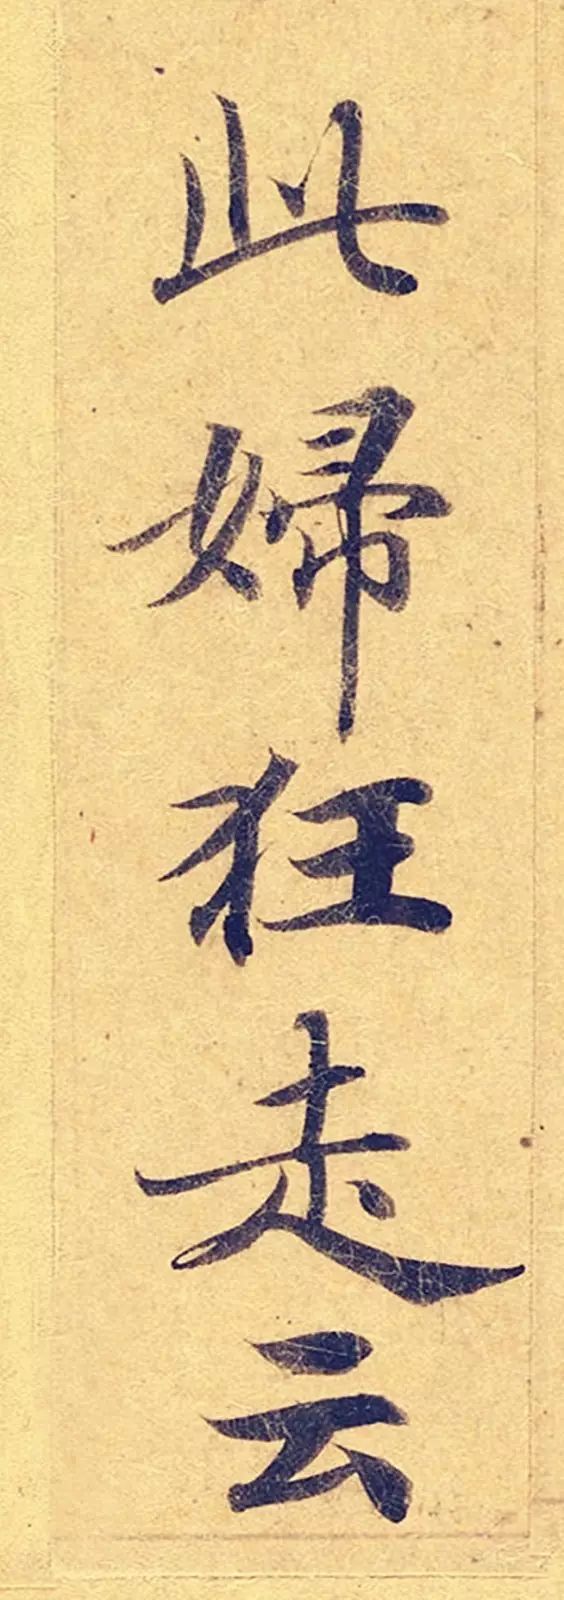 此婦狂走云